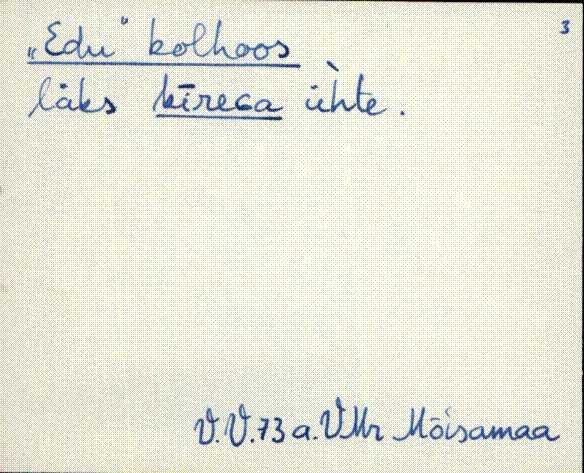 3
„Edu" kolhoos
läks kīreca ühte.
V. V. 73 a. VMr Mõisamaa